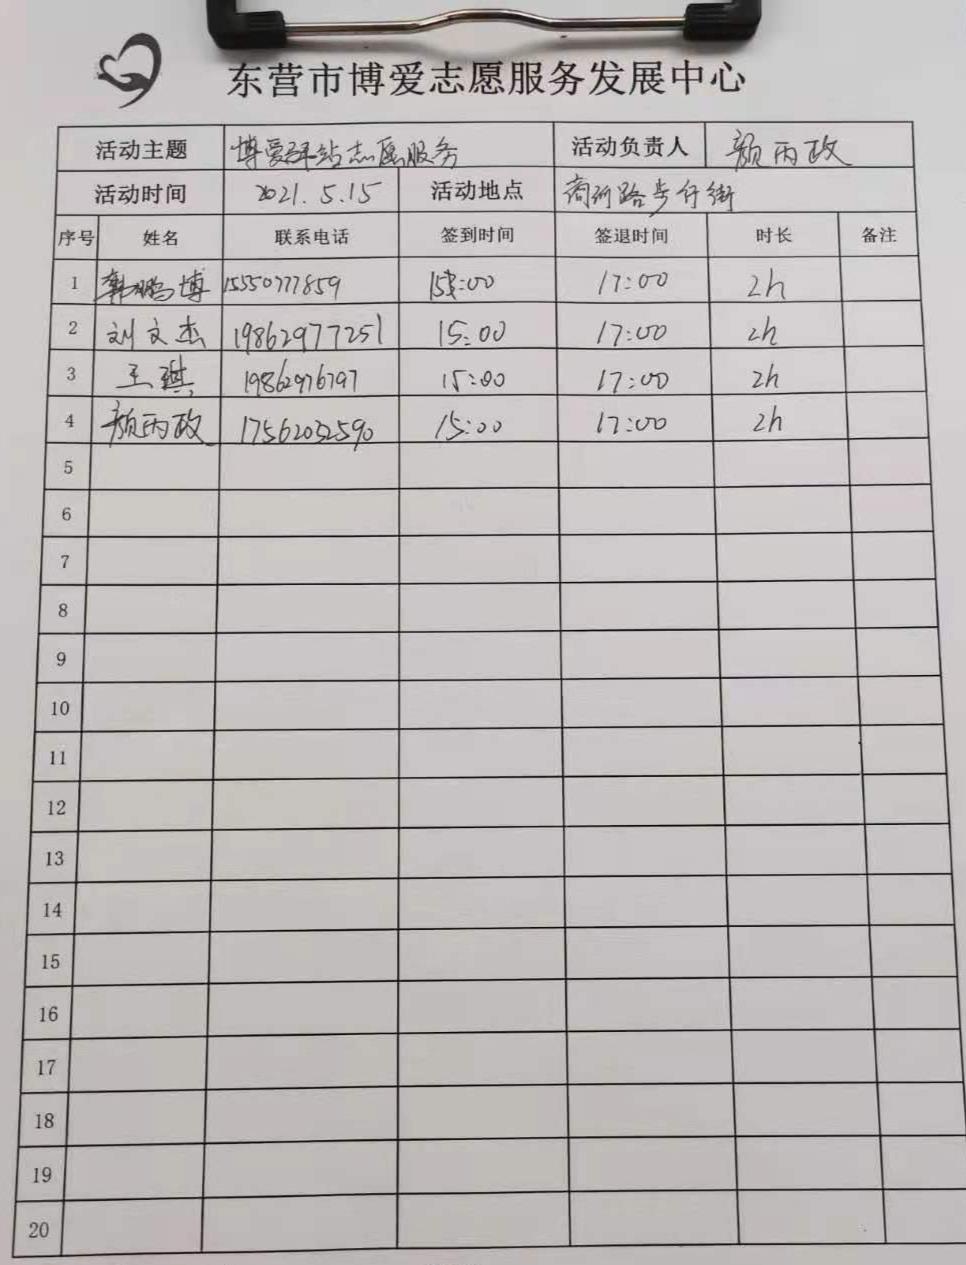 东营市博爱志愿服务发展中心
活动主题 博爱驿站志愿服务 活动负责人 颜丙政
活动时间 2021.5.15 活动地点 商河路步行街
序号 姓名 联系电话 签到时间 签退时间 时长 备注
1 韩鹏博 15550777859 15:00 17:00 2h
2 刘文杰 19862977251 15:00 17:00 2h
3 王琪 19862976797 15:00 17:00 2h
4 颜丙政 17562032590 15:00 17:00 2h
5
6
7
8
9
10
11
12
13
14
15
16
17
18
19
20